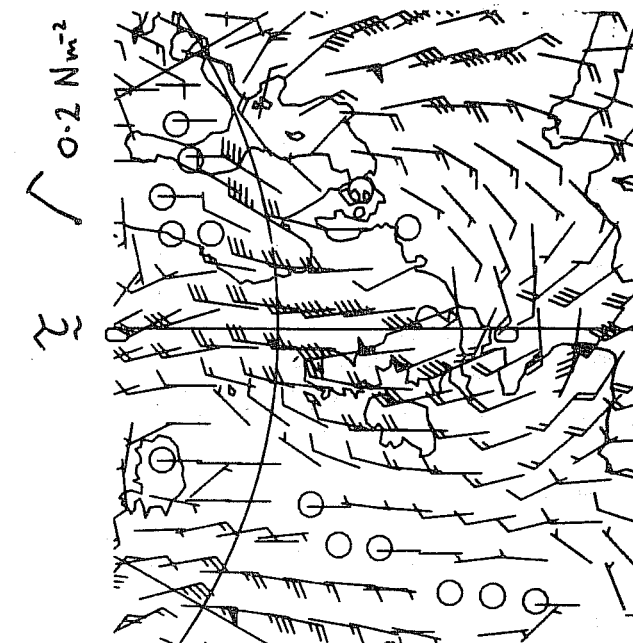 τ̰ 0·2 Nm⁻²